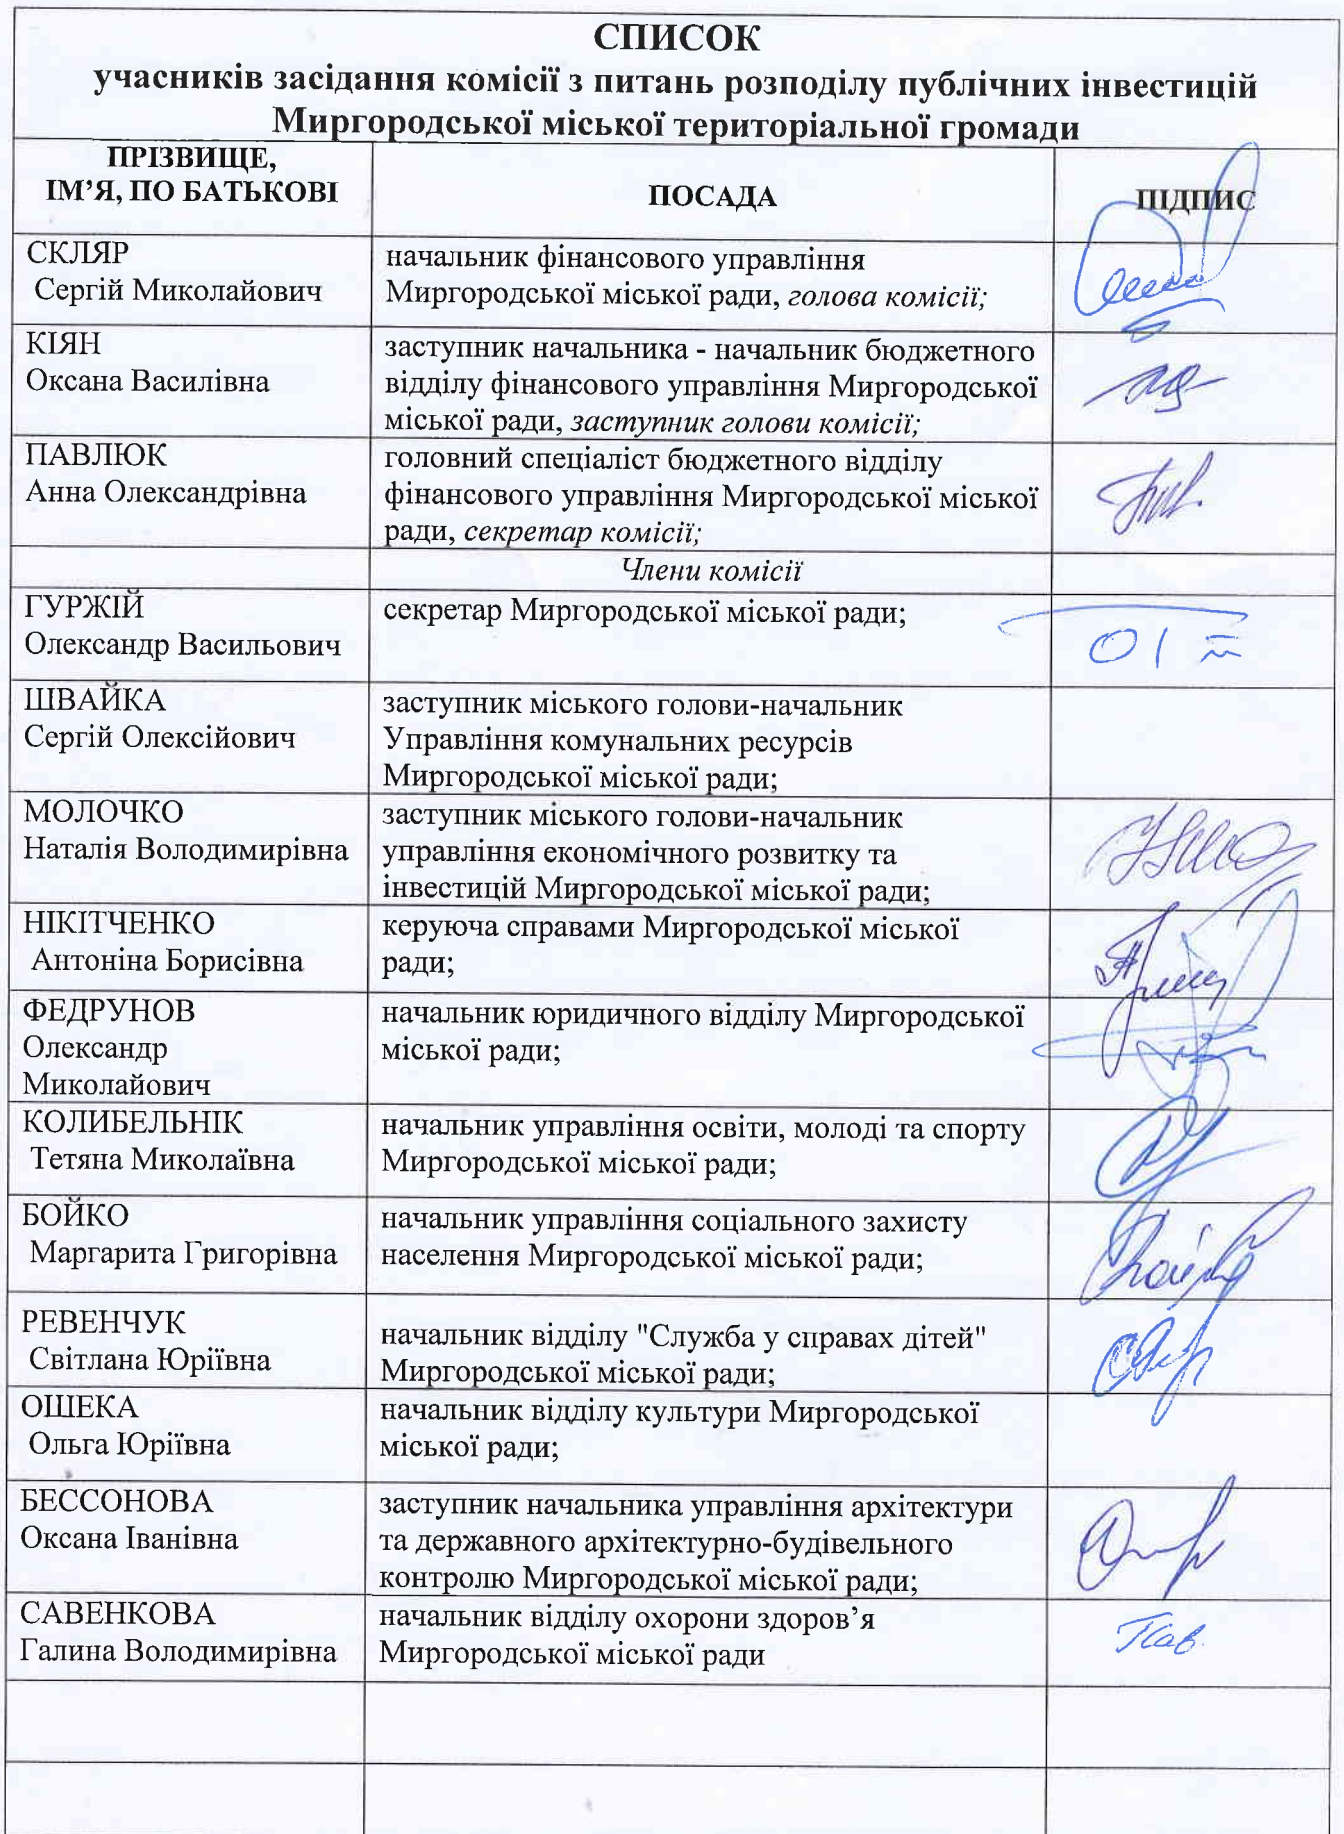 СПИСОК
учасників засідання комісії з питань розподілу публічних інвестицій
Миргородської міської територіальної громади
ПРІЗВИЩЕ,
ІМ’Я, ПО БАТЬКОВІ
ПОСАДА
ПІДПИС
СКЛЯР
Сергій Миколайович
начальник фінансового управління
Миргородської міської ради, голова комісії;
КІЯН
Оксана Василівна
заступник начальника - начальник бюджетного
відділу фінансового управління Миргородської
міської ради, заступник голови комісії;
ПАВЛЮК
Анна Олександрівна
головний спеціаліст бюджетного відділу
фінансового управління Миргородської міської
ради, секретар комісії;
Члени комісії
ГУРЖІЙ
Олександр Васильович
секретар Миргородської міської ради;
ШВАЙКА
Сергій Олексійович
заступник міського голови-начальник
Управління комунальних ресурсів
Миргородської міської ради;
МОЛОЧКО
Наталія Володимирівна
заступник міського голови-начальник
управління економічного розвитку та
інвестицій Миргородської міської ради;
НІКІТЧЕНКО
Антоніна Борисівна
керуюча справами Миргородської міської
ради;
ФЕДРУНОВ
Олександр
Миколайович
начальник юридичного відділу Миргородської
міської ради;
КОЛИБЕЛЬНІК
Тетяна Миколаївна
начальник управління освіти, молоді та спорту
Миргородської міської ради;
БОЙКО
Маргарита Григорівна
начальник управління соціального захисту
населення Миргородської міської ради;
РЕВЕНЧУК
Світлана Юріївна
начальник відділу "Служба у справах дітей"
Миргородської міської ради;
ОШЕКА
Ольга Юріївна
начальник відділу культури Миргородської
міської ради;
БЕССОНОВА
Оксана Іванівна
заступник начальника управління архітектури
та державного архітектурно-будівельного
контролю Миргородської міської ради;
САВЕНКОВА
Галина Володимирівна
начальник відділу охорони здоров’я
Миргородської міської ради